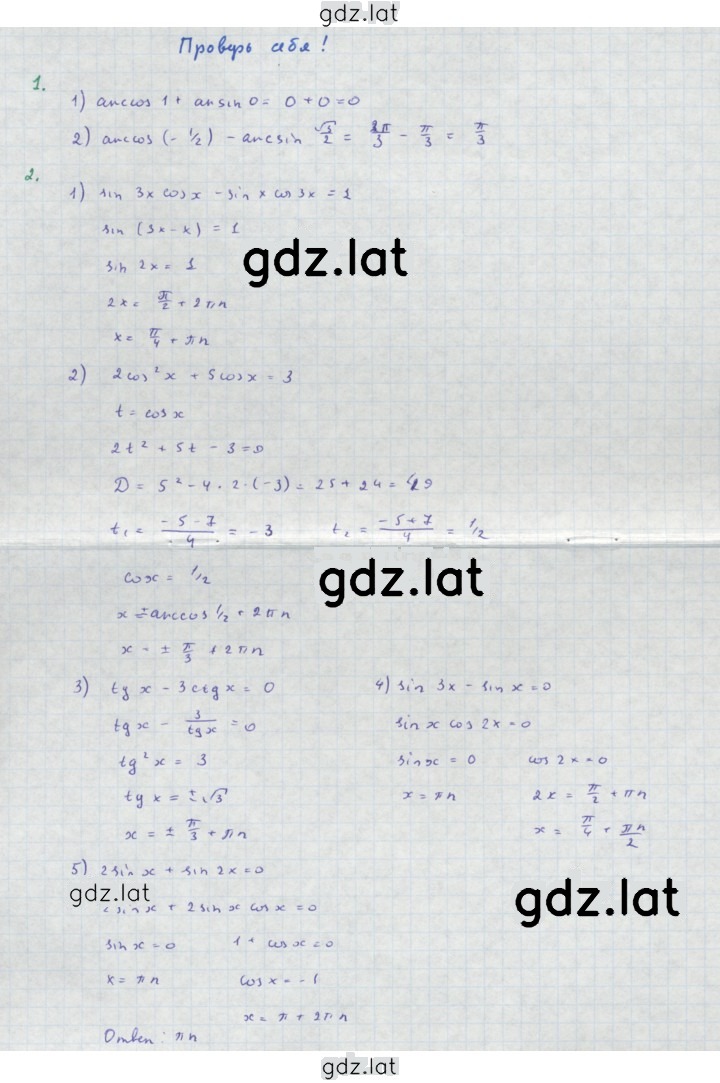 gdz.lat
Проверь себя!
1.
1) arccos 1 + arsin 0 = 0 + 0 = 0
2) arccos (- 1/2) - arcsin √3/2 = 2π/3 - π/3 = π/3
2.
1) sin 3x cos x - sin x cos 3x = 1
sin (3x - x) = 1
gdz.lat
sin 2x = 1
2x = π/2 + 2πn
x = π/4 + πn
2) 2cos² x + 5cos x = 3
t = cos x
2t² + 5t - 3 = 0
D = 5² - 4 · 2 · (-3) = 25 + 24 = 49
t₁ = (-5 - 7)/4 = -3 t₂ = (-5 + 7)/4 = 1/2
cos x = 1/2
gdz.lat
x = ± arccos 1/2 + 2πn
x = ± π/3 + 2πn
3) tg x - 3 ctg x = 0
tg x - 3/tg x = 0
tg² x = 3
tg x = ± √3
x = ± π/3 + πn
4) sin 3x - sin x = 0
sin x cos 2x = 0
sin x = 0 cos 2x = 0
x = πn 2x = π/2 + πn
x = π/4 + πn/2
5) 2 sin x + sin 2x = 0
gdz.lat
gdz.lat
2 sin x + 2 sin x cos x = 0
sin x = 0 1 + cos x = 0
x = πn cos x = -1
x = π + 2πn
Ответ: πn
gdz.lat